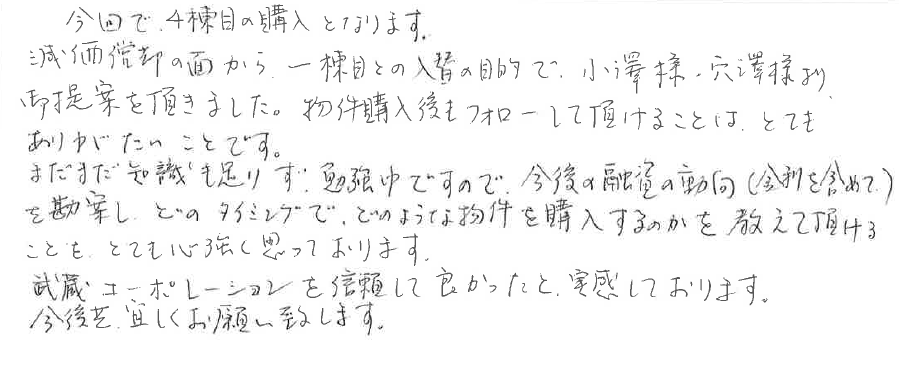 今回で、4棟目の購入となります。
減価償却の面から、一棟目との入替の目的で、小澤様・穴澤様より、
御提案を頂きました。物件購入後もフォローして頂けることは、とても
ありがたいことです。
まだまだ知識も足りず、勉強中ですので、今後の融資の動向(金利を含めて)
を勘案し、どのタイミングで、どのような物件を購入するのかを教えて頂ける
ことも、とても心強く思っております。
武蔵コーポレーションを信頼して良かったと、実感しております。
今後も、宜しくお願い致します。